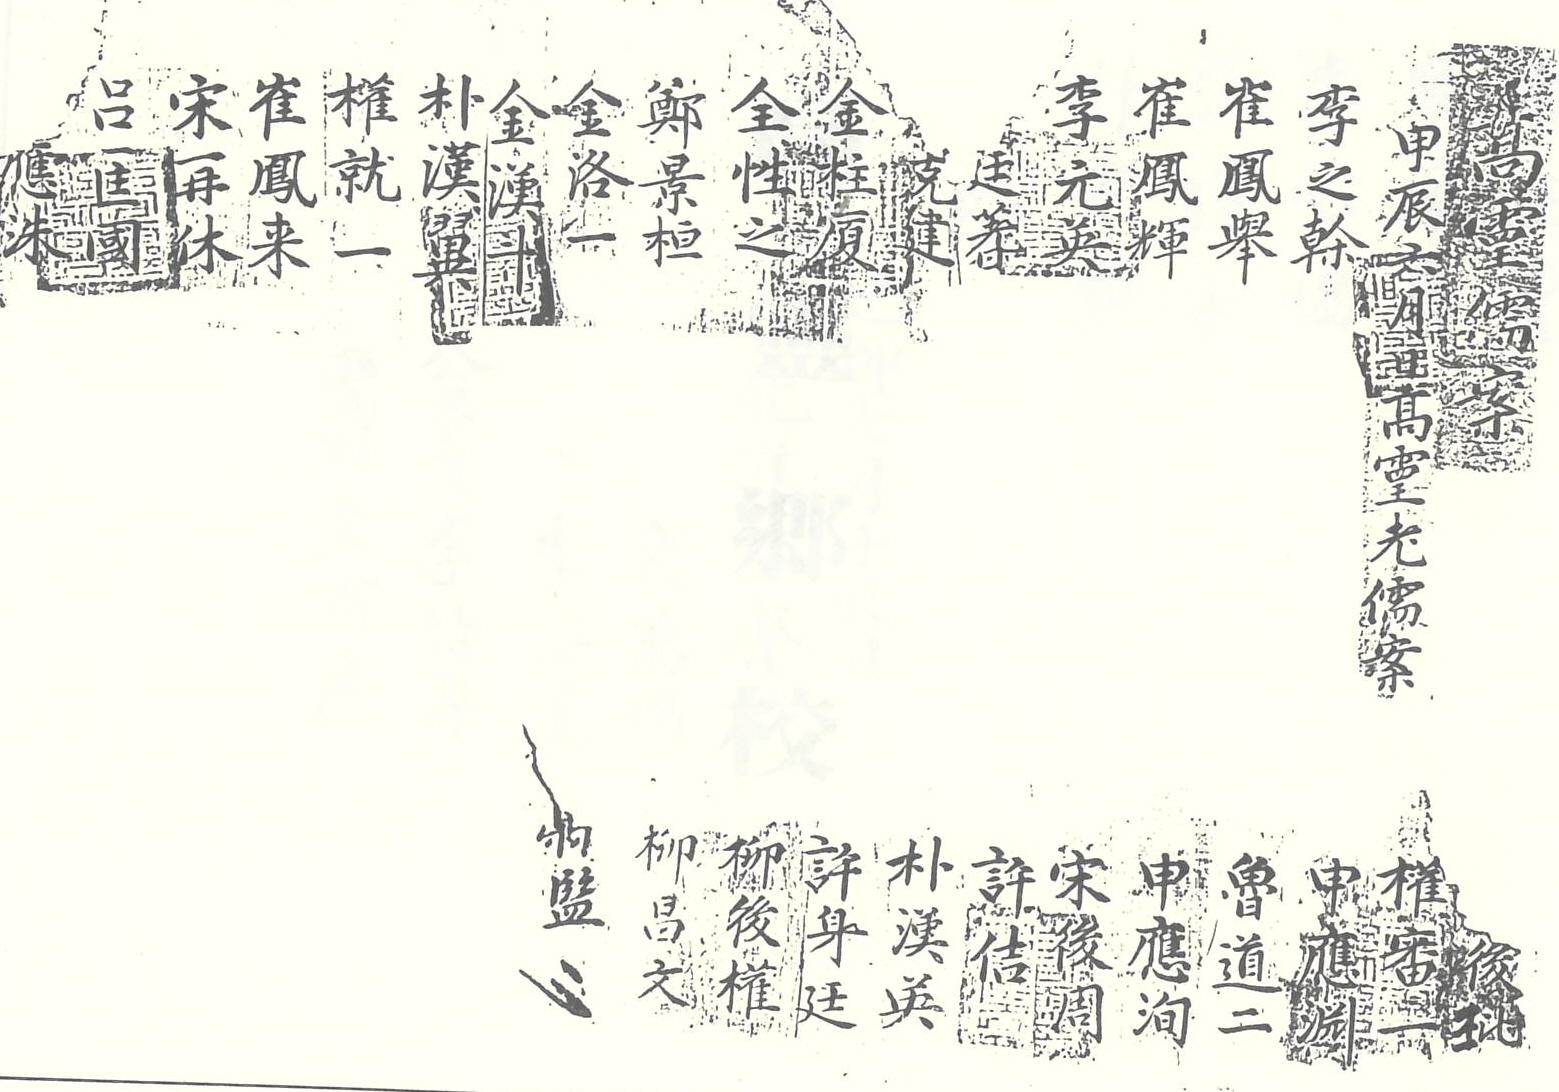 高靈儒案
申辰六月日高靈老儒案
李之榦
崔鳳舉
崔鳳輝
李元英
廷蓍
克建
金柱厦
全性之
鄭景桓
金洛一
金漢斗
朴漢翼
權就一
崔鳳来
宋再休
呂匡國
應洙
後
權審一
申應淵
魯道二
申應洵
宋後周
許佶
朴漢英
許身廷
柳後權
柳昌文
監